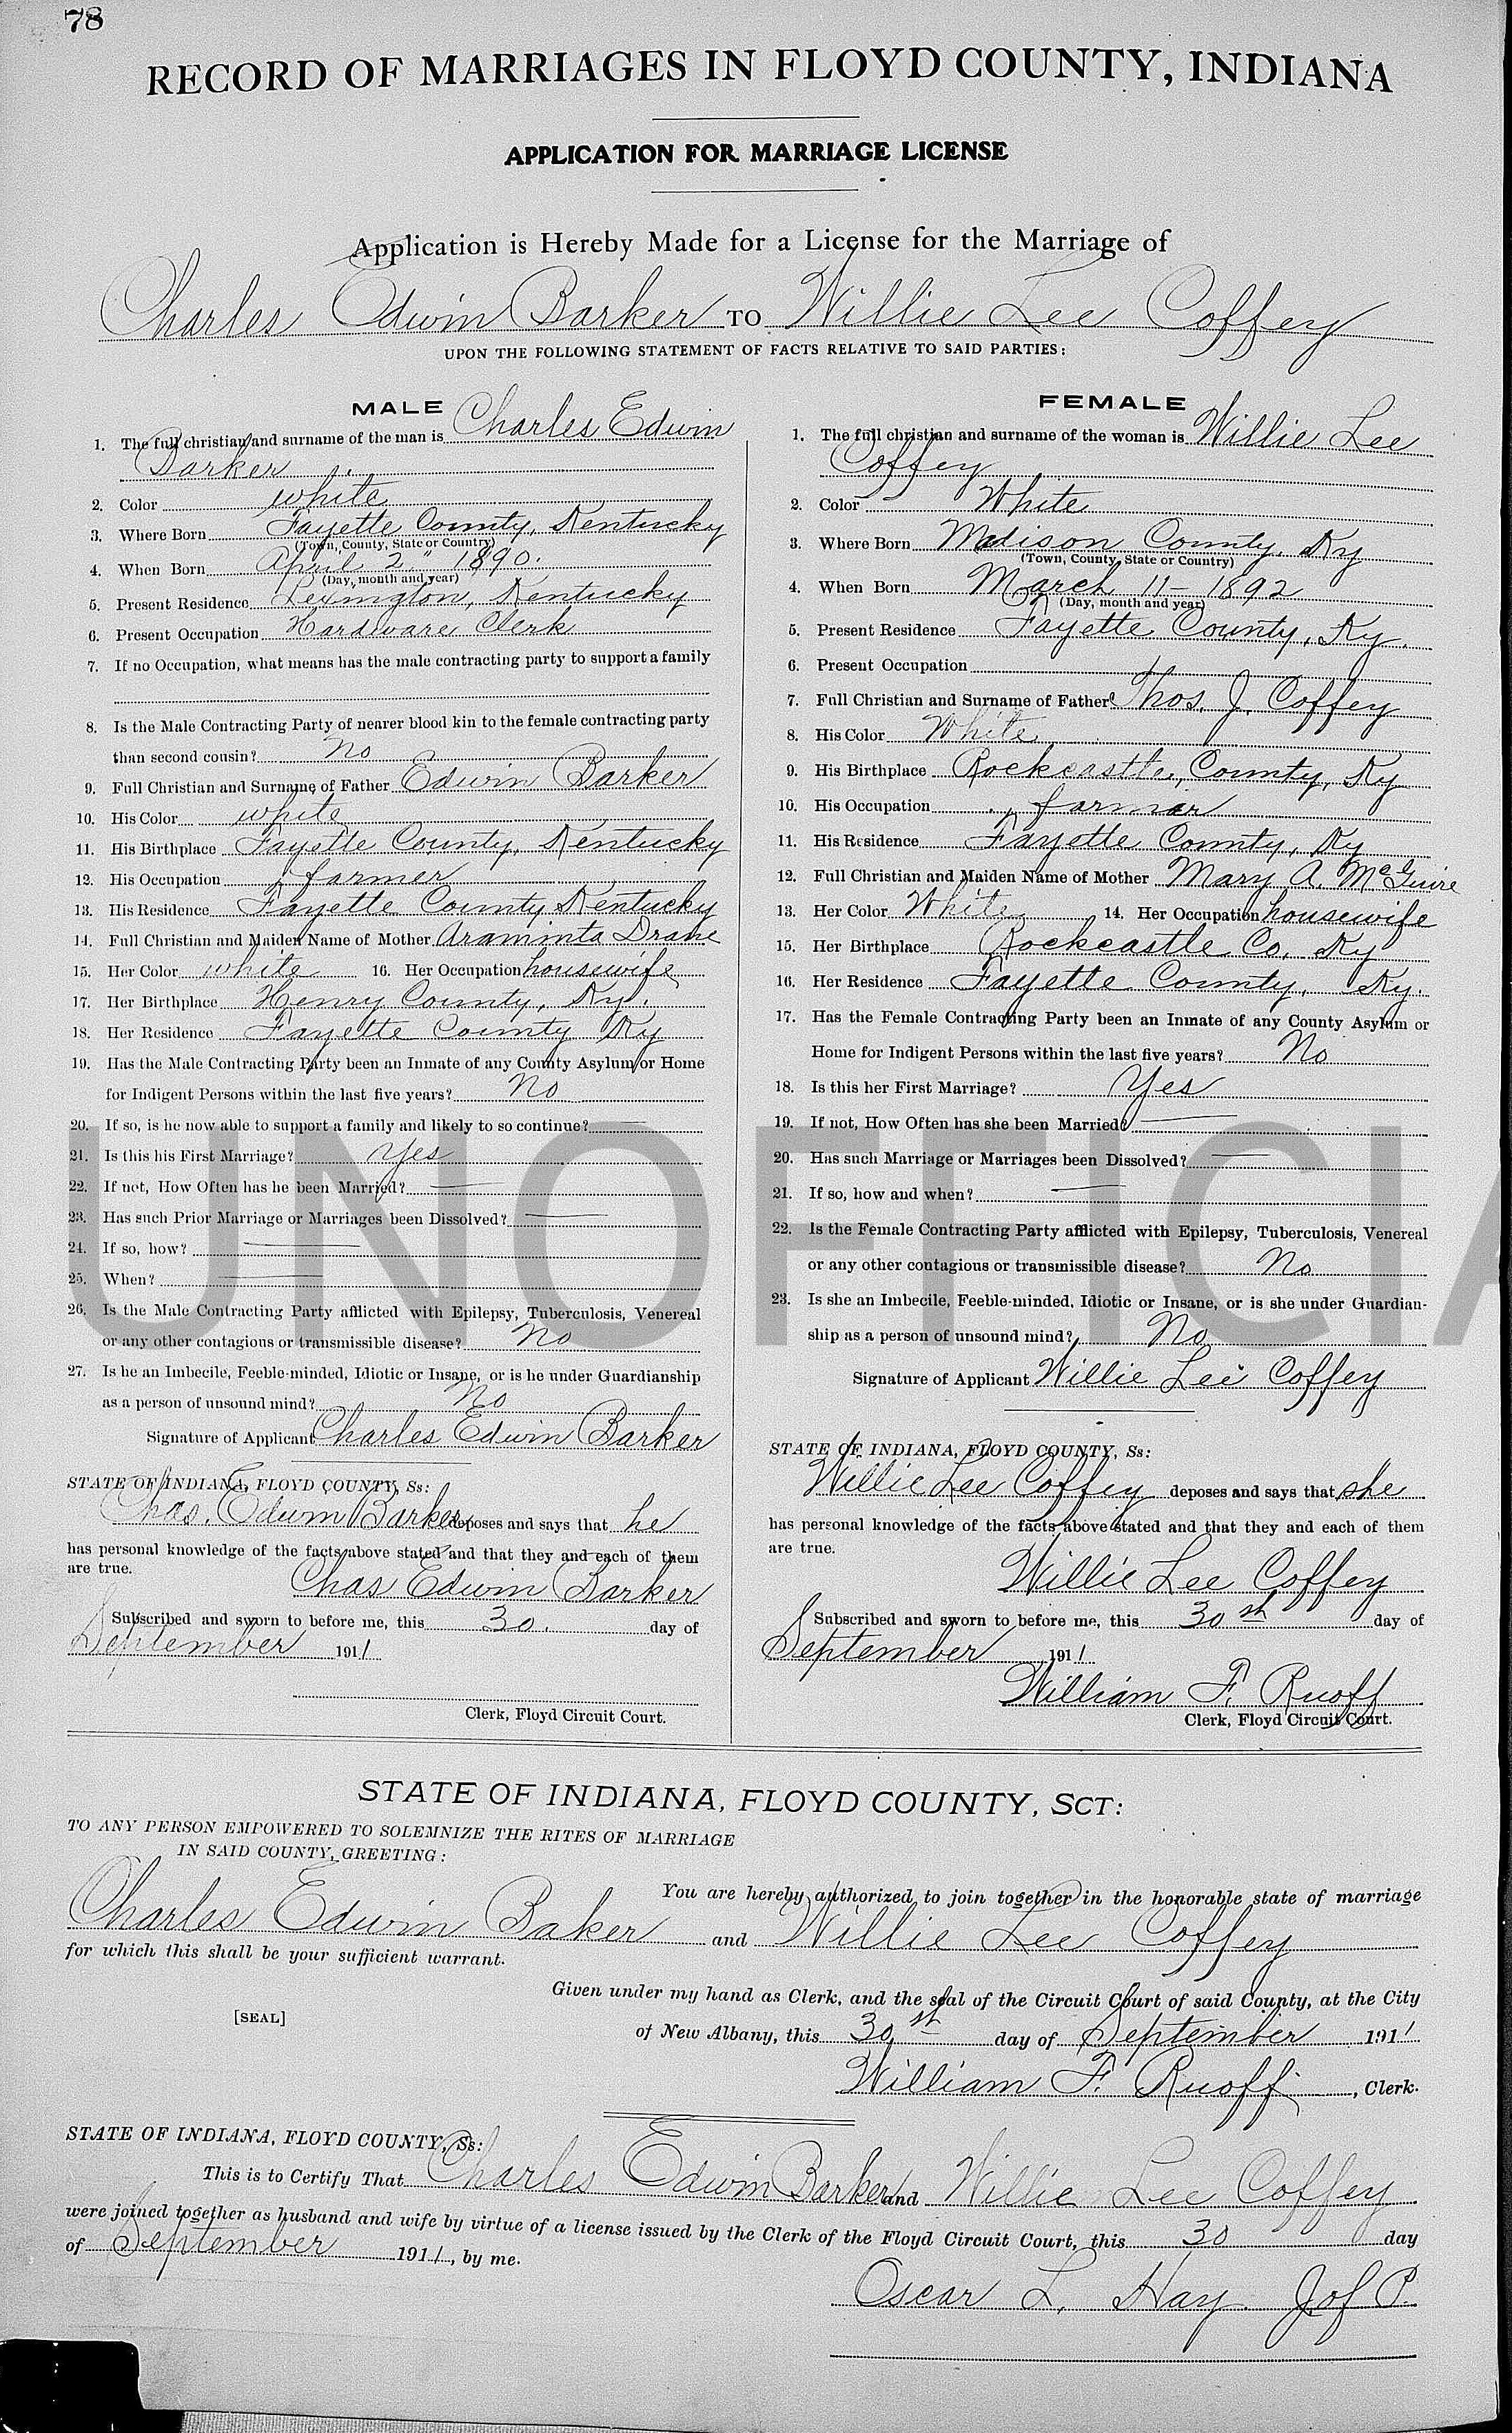 78
RECORD OF MARRIAGES IN FLOYD COUNTY, INDIANA
APPLICATION FOR MARRIAGE LICENSE
Application is Hereby Made for a License for the Marriage of
Charles Edwin Barker TO Willie Lee Coffey
UPON THE FOLLOWING STATEMENT OF FACTS RELATIVE TO SAID PARTIES:
MALE
1. The full christian and surname of the man is Charles Edwin
Barker
2. Color white
3. Where Born Fayette County, Kentucky
(Town, County, State or Country)
4. When Born April 2" 1890.
(Day, month and year)
5. Present Residence Lexington, Kentucky
6. Present Occupation Hardware Clerk
7. If no Occupation, what means has the male contracting party to support a family
8. Is the Male Contracting Party of nearer blood kin to the female contracting party
than second cousin? No
9. Full Christian and Surname of Father Edwin Barker
10. His Color white
11. His Birthplace Fayette County, Kentucky
12. His Occupation farmer
13. His Residence Fayette County Kentucky
14. Full Christian and Maiden Name of Mother Araminta Drane
15. Her Color white 16. Her Occupation housewife
17. Her Birthplace Henry County, Ky.
18. Her Residence Fayette County Ky
19. Has the Male Contracting Party been an Inmate of any County Asylum or Home
for Indigent Persons within the last five years? No
20. If so, is he now able to support a family and likely to so continue?
21. Is this his First Marriage? Yes
22. If not, How Often has he been Married?
23. Has such Prior Marriage or Marriages been Dissolved?
24. If so, how?
25. When?
26. Is the Male Contracting Party afflicted with Epilepsy, Tuberculosis, Venereal
or any other contagious or transmissible disease? No
27. Is he an Imbecile, Feeble-minded, Idiotic or Insane, or is he under Guardianship
as a person of unsound mind? No
Signature of Applicant Charles Edwin Barker
STATE OF INDIANA, FLOYD COUNTY, Ss:
Chas. Edwin Barker deposes and says that he
has personal knowledge of the facts above stated and that they and each of them
are true.
Chas Edwin Barker
Subscribed and sworn to before me, this 30. day of
September 1911
Clerk, Floyd Circuit Court.
FEMALE
1. The full christian and surname of the woman is Willie Lee
Coffey
2. Color White
3. Where Born Madison County, Ky
(Town, County, State or Country)
4. When Born March 11 - 1892
(Day, month and year)
5. Present Residence Fayette County, Ky.
6. Present Occupation
7. Full Christian and Surname of Father Thos. J. Coffey
8. His Color White
9. His Birthplace Rockcastle, County, Ky
10. His Occupation farmer
11. His Residence Fayette County, Ky
12. Full Christian and Maiden Name of Mother Mary A. McGuire
13. Her Color White 14. Her Occupation housewife
15. Her Birthplace Rockcastle Co. Ky
16. Her Residence Fayette County, Ky.
17. Has the Female Contracting Party been an Inmate of any County Asylum or
Home for Indigent Persons within the last five years? No
18. Is this her First Marriage? Yes
19. If not, How Often has she been Married?
20. Has such Marriage or Marriages been Dissolved?
21. If so, how and when?
22. Is the Female Contracting Party afflicted with Epilepsy, Tuberculosis, Venereal
or any other contagious or transmissible disease? No
23. Is she an Imbecile, Feeble-minded, Idiotic or Insane, or is she under Guardian-
ship as a person of unsound mind? No
Signature of Applicant Willie Lee Coffey
STATE OF INDIANA, FLOYD COUNTY, Ss:
Willie Lee Coffey deposes and says that she
has personal knowledge of the facts above stated and that they and each of them
are true.
Willie Lee Coffey
Subscribed and sworn to before me, this 30st day of
September 1911
William F. Ruoff
Clerk, Floyd Circuit Court.
UNOFFICIA
STATE OF INDIANA, FLOYD COUNTY, SCT:
TO ANY PERSON EMPOWERED TO SOLEMNIZE THE RITES OF MARRIAGE
IN SAID COUNTY, GREETING:
You are hereby authorized to join together in the honorable state of marriage
Charles Edwin Baker and Willie Lee Coffey
for which this shall be your sufficient warrant.
Given under my hand as Clerk, and the seal of the Circuit Court of said County, at the City
[SEAL]
of New Albany, this 30st day of September 1911
William F. Ruoff, Clerk.
STATE OF INDIANA, FLOYD COUNTY, Ss:
This is to Certify That Charles Edwin Barker and Willie Lee Coffey
were joined together as husband and wife by virtue of a license issued by the Clerk of the Floyd Circuit Court, this 30 day
of September 1911, by me.
Oscar L. Hay J of P.